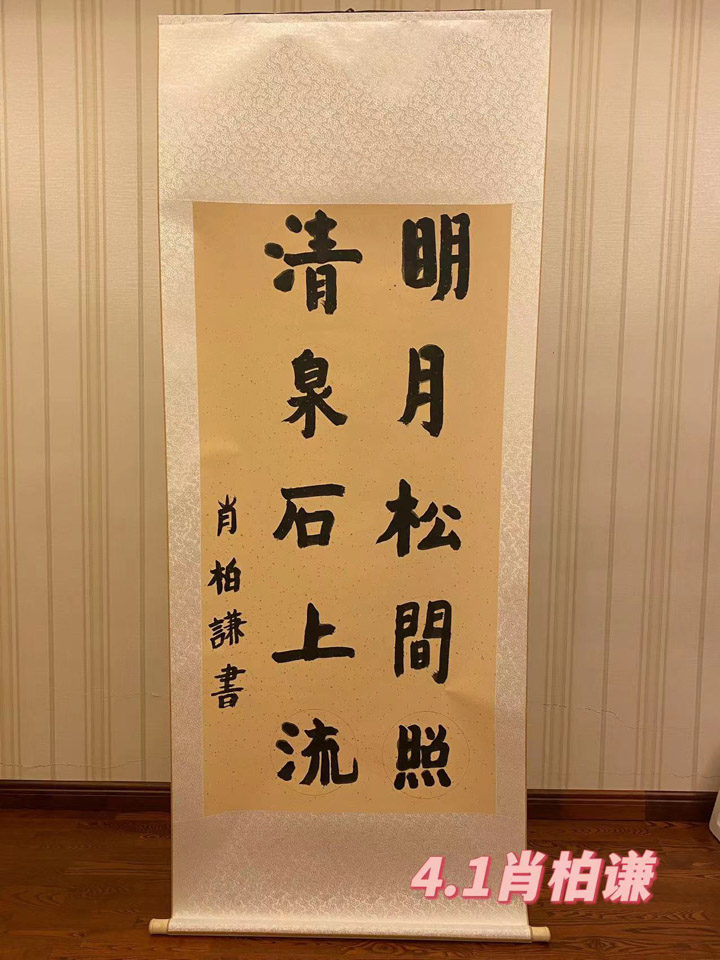 明月松間照
清泉石上流
肖柏謙書
4.1肖柏谦